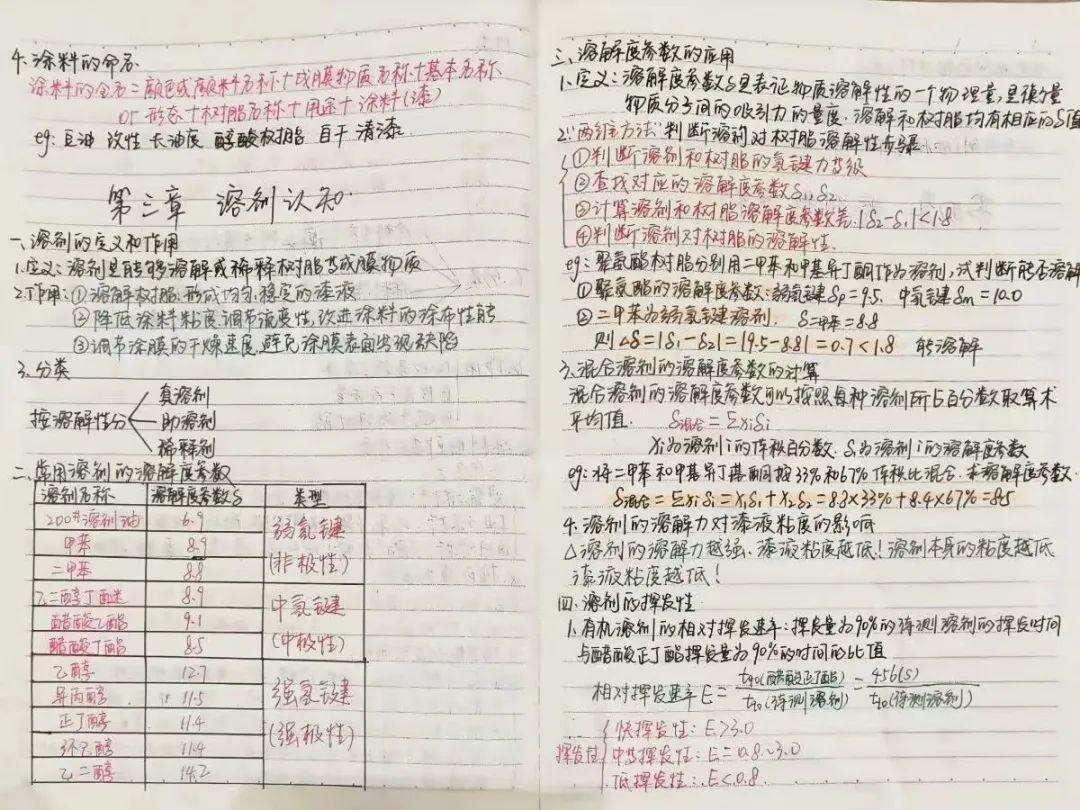 4. 涂料的命名
涂料的全名=颜色或颜料名称+成膜物质名称+基本名称
or 形态+树脂名称+用途+涂料(漆)
eg: 豆油 改性 长油度 醇酸树脂 自干 清漆
第三章 溶剂认知
一、溶剂的定义和作用
1. 定义: 溶剂是能够溶解或稀释树脂等成膜物质
2. 作用: ①溶解树脂, 形成均匀, 稳定的漆液
②降低涂料粘度, 调节流变性, 改进涂料的涂布性能
③调节涂膜的干燥速度, 避免涂膜表面出现缺陷
3. 分类
按溶解性分
真溶剂
助溶剂
稀释剂
二、常用溶剂的溶解度参数
溶剂名称 溶解度参数δ 类型
200#溶剂油 6.9 弱氢键
甲苯 8.9
二甲苯 8.8 (非极性)
乙二醇丁醚 8.9 中氢键
醋酸乙酯 9.1
醋酸丁酯 8.5 (中极性)
乙醇 12.7
异丙醇 11.5 强氢键
正丁醇 11.4
环己醇 11.4 (强极性)
乙二醇 14.2
三、溶解度参数的应用
1. 定义: 溶解度参数δ是表征物质溶解性的一个物理量, 是衡量
物质分子间的吸引力的量度. 溶解和树脂均有相应的δ值
2."两维方法"判断溶剂对树脂溶解性步骤
①判断溶剂和树脂的氢键力等级
②查找对应的溶解度参数δ1, δ2
③计算溶剂和树脂溶解度参数差, |δ2-δ1|<1.8
④判断溶剂对树脂的溶解性.
eg: 聚氨酯树脂分别用二甲苯和甲基异丁酮作为溶剂, 试判断能否溶解
①聚氨酯的溶解度参数: 弱氢键δp=9.5, 中氢键δm=10.0
②二甲苯为弱氢键溶剂, δ二甲苯=8.8
则△δ=|δ1-δ2|=|9.5-8.8|=0.7<1.8 能溶解
3. 混合溶剂的溶解度参数的计算
混合溶剂的溶解度参数可以按照每种溶剂所占百分数取算术
平均值. δ混合=Σxiδi
xi为溶剂i的体积百分数, δi为溶剂i的溶解度参数
eg: 将二甲苯和甲基异丁基酮按33%和67%体积比混合. 求溶解度参数.
δ混合=Σxiδi=x1δ1+x2δ2=8.8×33%+8.4×67%=8.5
4. 溶剂的溶解力对漆液粘度的影响
△溶剂的溶解力越强, 漆液粘度越低! 溶剂本身的粘度越低
漆液粘度越低!
四、溶剂的挥发性
1. 有机溶剂的相对挥发速率: 挥发量为90%的待测溶剂的挥发时间
与醋酸正丁酯挥发量为90%的时间的比值
相对挥发速率E=t90(醋酸正丁酯)/t90(待测溶剂)=456(s)/t90(待测溶剂)
挥发性
快挥发性: E>3.0
中等挥发性: E=0.8~3.0
低挥发性: E<0.8